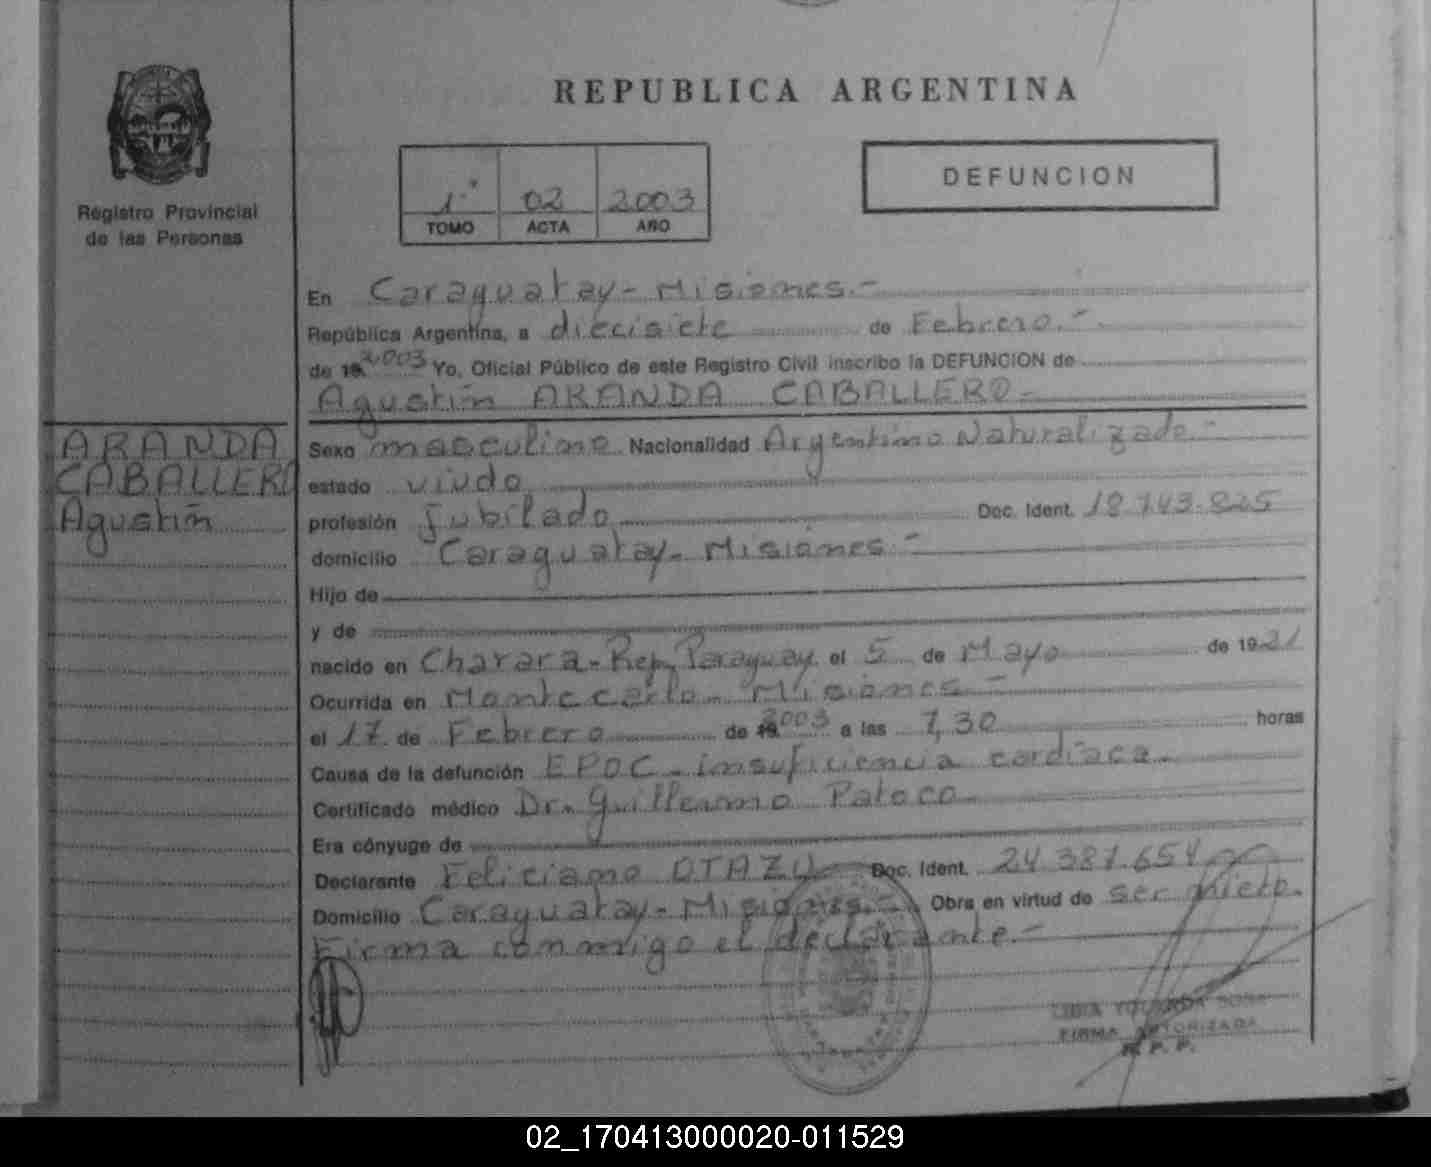 REPUBLICA ARGENTINA
Registro Provincial
de las Personas
1.° 02 2003
TOMO ACTA AÑO
DEFUNCION
En Caraguatay - Misiones.-
República Argentina, a diecisiete de Febrero.-
de 19 2003 Yo, Oficial Público de este Registro Civil inscribo la DEFUNCION de
Agustín ARANDA CABALLERO -
ARANDA
CABALLERO
Agustín
Sexo masculino Nacionalidad Argentino Naturalizado -
estado viudo
profesión Jubilado Doc. Ident. 18.743.825
domicilio Caraguatay - Misiones -
Hijo de
y de
nacido en Charara - Rep. Paraguay el 5 de Mayo de 1921
Ocurrida en Montecarlo - Misiones -
el 17 de Febrero de 19 2003 a las 7,30 horas
Causa de la defunción EPOC - insuficiencia cardíaca -
Certificado médico Dr. Guillermo Patoco
Era cónyuge de
Declarante Feliciano OTAZU Doc. Ident. 24.387.654
Domicilio Caraguatay - Misiones - Obra en virtud de ser nieto.
Firma conmigo el declarante.-
YOLANDA SOSA
FIRMA AUTORIZADA
R. P. P.
02_170413000020-011529